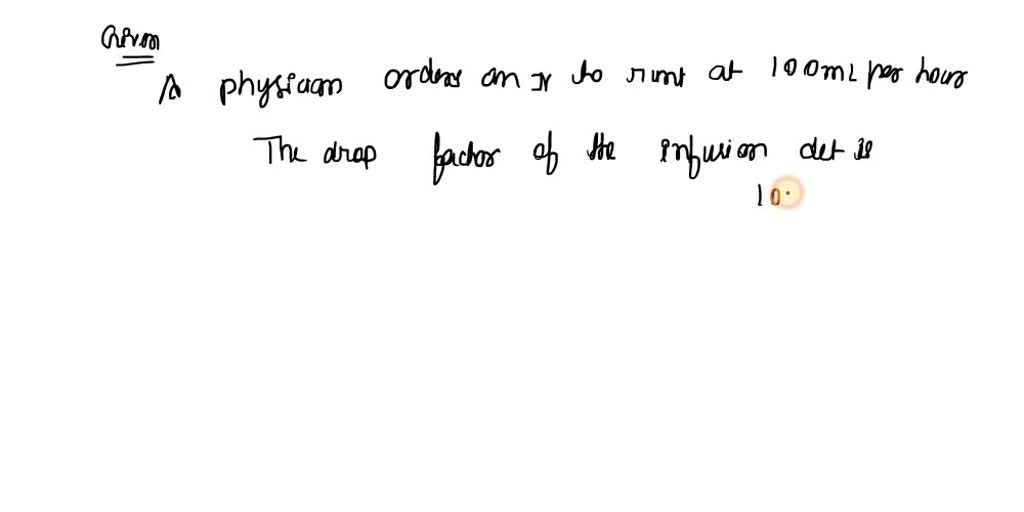 Given
A physician orders an IV to run at 100mL per hour
The drop factor of the infusion set is
10